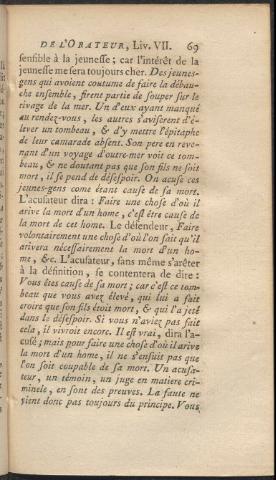 DE L'ORATEUR, Liv. VII. 69
sensible à la jeunesse; car l'intérêt de la
jeunesse me sera toujours cher. Des jeunes-
gens qui avoient coutume de faire la débau-
che ensemble, firent partie de souper sur le
rivage de la mer. Un d'eux ayant manqué
au rendez-vous, les autres s'avisèrent d'é-
lever un tombeau, & d'y mettre l'épitaphe
de leur camarade absent. Son pere en reve-
nant d'un voyage d'outre-mer voit ce tom-
beau, & ne doutant pas que son fils ne soit
mort, il se pend de désespoir. On acuse ces
jeunes-gens come étant cause de sa mort.
L'acusateur dira: Faire une chose d'où il
arive la mort d'un home, c'est être cause de
la mort de cet home. Le défendeur, Faire
volontairement une chose d'où l'on sait qu'il
arivera nécessairement la mort d'un ho-
me, &c. L'acusateur, sans même s'arêter
à la définition, se contentera de dire:
Vous êtes cause de sa mort; car c'est ce tom-
beau que vous avez élevé, qui lui a fait
croire que son fils étoit mort, & qui l'a jeté
dans le désespoir. Si vous n'aviez pas fait
cela, il vivroit encore. Il est vrai, dira l'a-
cusé; mais pour faire une chose d'où il arive
la mort d'un home, il ne s'ensuit pas que
l'on soit coupable de sa mort. Un acusa-
teur, un témoin, un juge en matiere cri-
minele, en sont des preuves. La faute ne
vient donc pas toujours du principe. Vous